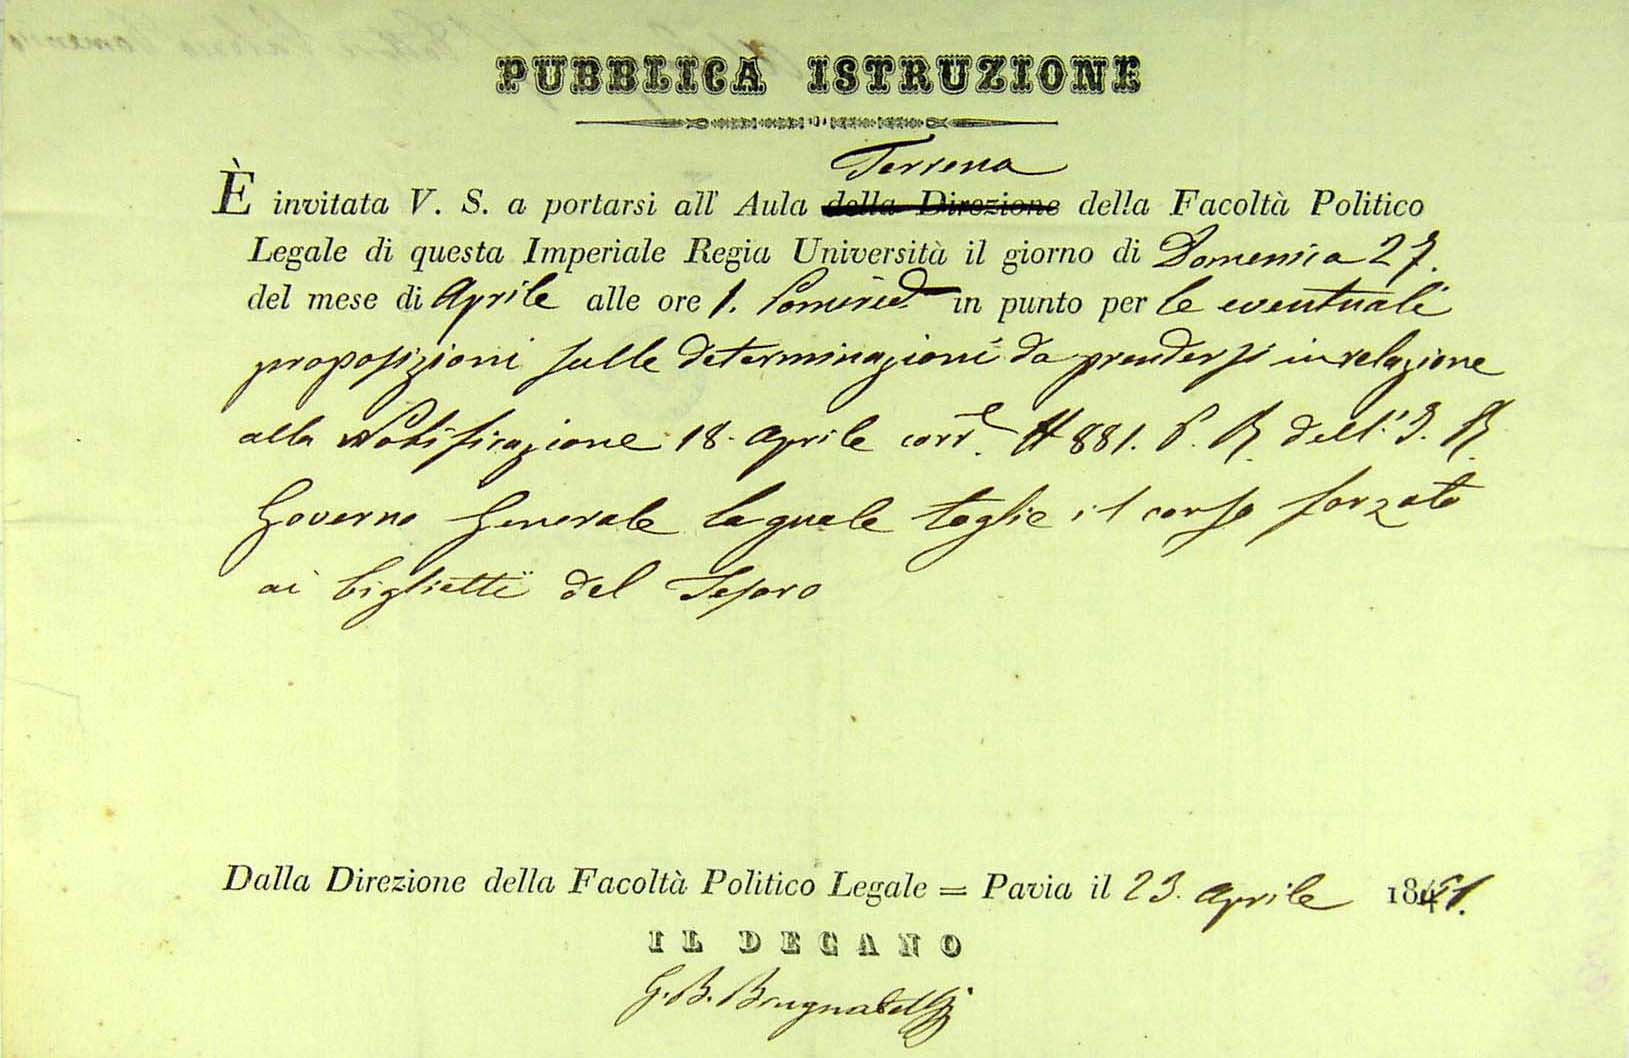 PUBBLICA ISTRUZIONE
Terrena
È invitata V. S. a portarsi all' Aula della Direzione della Facoltà Politico
Legale di questa Imperiale Regia Università il giorno di Domenica 27.
del mese di Aprile alle ore 1. Pomerid. in punto per le eventuali
proposizioni sulle determinazioni da prendersi in relazione
alla Notificazione 18. Aprile corr.e N 881. P. R. dell' I. R.
Governo Generale la quale toglie il corso forzato
ai biglietti del Tesoro
Dalla Direzione della Facoltà Politico Legale = Pavia il 23. Aprile 1851.
IL DECANO
G. B. Brugnatelli